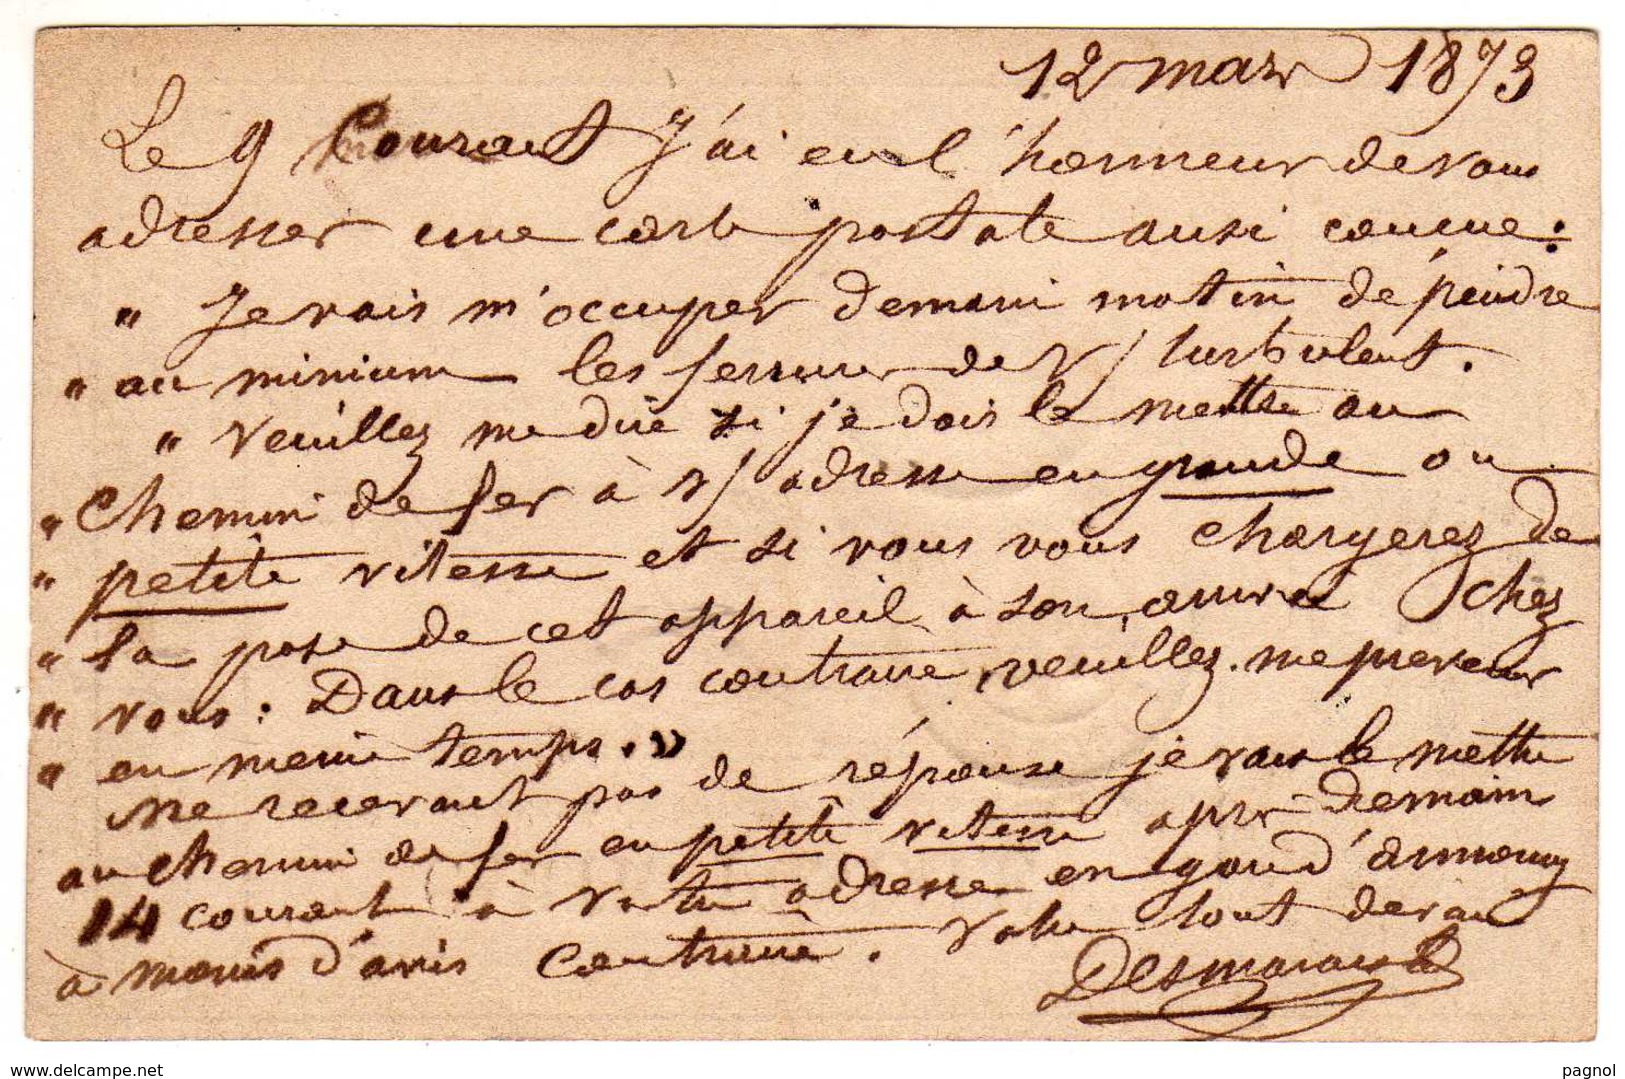 12 mars 1873
Le 9 Courant J'ai eu l'honneur de vous
adresser une carte postale ainsi concue :
" Je vais m'occuper demain matin de peindre
" au minium les ferrures de V/ turbulent.
" Veuillez me dire si je dois le mettre au
" Chemin de fer à V/ adresse en grande ou
" petite vitesse et si vous vous chargerez de
" la pose de cet appareil à son arrivée chez
" vous : Dans le cas contraire, veuillez me prevenir
" en meme temps. "
Ne recevant pas de réponse je vais le mettre
au chemin de fer en petite vitesse après demain
14 courant à votre adresse en
à moins d'avis Contraire. Votre tout devoué
Desmarais
www.delcampe.net
pagnol